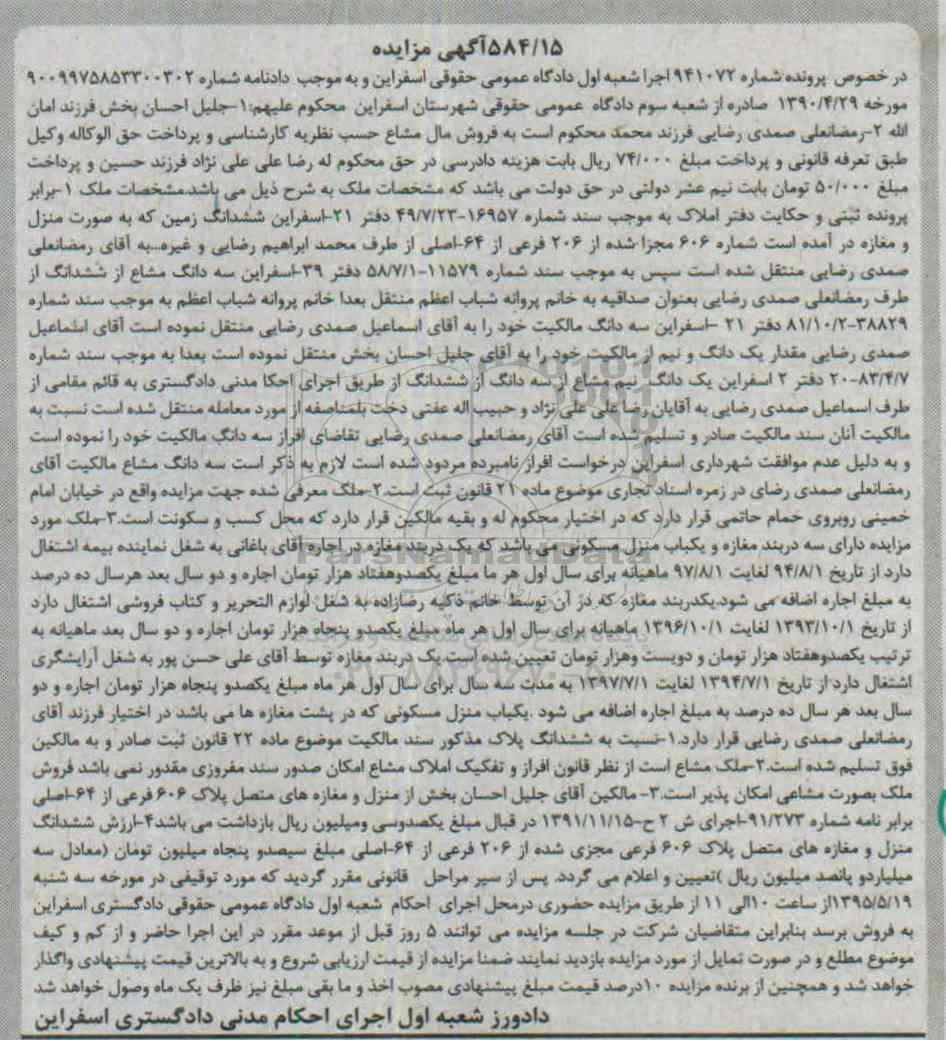 ۵۸۴/۱۵آگهی مزایده
در خصوص پرونده شماره ۹۴۱۰۷۲ اجرا شعبه اول دادگاه عمومی حقوقی اسفراین و به موجب دادنامه شماره ۹۰۰۹۹۷۵۸۵۳۳۰۰۳۰۲
مورخه ۱۳۹۰/۴/۲۹ صادره از شعبه سوم دادگاه عمومی حقوقی شهرستان اسفراین محکوم علیهم:۱-جلیل احسان بخش فرزند امان
الله ۲-رمضانعلی صمدی رضایی فرزند محمد محکوم است به فروش مال مشاع حسب نظریه کارشناسی و پرداخت حق الوکاله وکیل
طبق تعرفه قانونی و پرداخت مبلغ ۷۴/۰۰۰ ریال بابت هزینه دادرسی در حق محکوم له رضا علی علی نژاد فرزند حسین و پرداخت
مبلغ ۵۰/۰۰۰ تومان بابت نیم عشر دولتی در حق دولت می باشد که مشخصات ملک به شرح ذیل می باشد.مشخصات ملک ۱-برابر
پرونده ثبتی و حکایت دفتر املاک به موجب سند شماره ۱۶۹۵۷-۴۹/۷/۲۳ دفتر ۲۱-اسفراین ششدانگ زمین که به صورت منزل
و مغازه در آمده است شماره ۶۰۶ مجزا شده از ۲۰۶ فرعی از ۶۴-اصلی از طرف محمد ابراهیم رضایی و غیره..به آقای رمضانعلی
صمدی رضایی منتقل شده است سپس به موجب سند شماره ۱۱۵۷۹-۵۸/۷/۱ دفتر ۳۹-اسفراین سه دانگ مشاع از ششدانگ از
طرف رمضانعلی صمدی رضایی بعنوان صداقیه به خانم پروانه شباب اعظم منتقل بعدا خانم پروانه شباب اعظم به موجب سند شماره
۳۸۸۲۹-۸۱/۱۰/۲ دفتر ۲۱ -اسفراین سه دانگ مالکیت خود را به آقای اسماعیل صمدی رضایی منتقل نموده است آقای اسماعیل
صمدی رضایی مقدار یک دانگ و نیم از مالکیت خود را به آقای جلیل احسان بخش منتقل نموده است بعدا به موجب سند شماره
۲۰-۸۳/۴/۷ دفتر ۲ اسفراین یک دانگ نیم مشاع از سه دانگ از ششدانگ از طریق اجرای احکا مدنی دادگستری به قائم مقامی از
طرف اسماعیل صمدی رضایی به آقایان رضا علی علی نژاد و حبیب اله عفتی دخت بلمناصفه از مورد معامله منتقل شده است نسبت به
مالکیت آنان سند مالکیت صادر و تسلیم شده است آقای رمضانعلی صمدی رضایی تقاضای افراز سه دانگ مالکیت خود را نموده است
و به دلیل عدم موافقت شهرداری اسفراین درخواست افراز نامبرده مردود شده است لازم به ذکر است سه دانگ مشاع مالکیت آقای
رمضانعلی صمدی رضای در زمره اسناد تجاری موضوع ماده ۲۱ قانون ثبت است.۲-ملک معرفی شده جهت مزایده واقع در خیابان امام
خمینی روبروی حمام حاتمی قرار دارد که در اختیار محکوم له و بقیه مالکین قرار دارد که محل کسب و سکونت است.۳-ملک مورد
مزایده دارای سه دربند مغازه و یکباب منزل مسکونی می باشد که یک دربند مغازه در اجاره آقای باغانی به شغل نماینده بیمه اشتغال
دارد از تاریخ ۹۴/۸/۱ لغایت ۹۷/۸/۱ ماهیانه برای سال اول هر ما مبلغ یکصدوهفتاد هزار تومان اجاره و دو سال بعد هرسال ده درصد
به مبلغ اجاره اضافه می شود.یکدربند مغازه که در آن توسط خانم ذکیه رضازاده به شغل لوازم التحریر و کتاب فروشی اشتغال دارد
از تاریخ ۱۳۹۳/۱۰/۱ لغایت ۱۳۹۶/۱۰/۱ ماهیانه برای سال اول هر ماه مبلغ یکصدو پنجاه هزار تومان اجاره و دو سال بعد ماهیانه به
ترتیب یکصدوهفتاد هزار تومان و دویست وهزار تومان تعیین شده است.یک دربند مغازه توسط آقای علی حسن پور به شغل آرایشگری
اشتغال دارد.از تاریخ ۱۳۹۴/۷/۱ لغایت ۱۳۹۷/۷/۱ به مدت سه سال برای سال اول هر ماه مبلغ یکصدو پنجاه هزار تومان اجاره و دو
سال بعد هر سال ده درصد به مبلغ اجاره اضافه می شود .یکباب منزل مسکونی که در پشت مغازه ها می باشد در اختیار فرزند آقای
رمضانعلی صمدی رضایی قرار دارد.۱-نسبت به ششدانگ پلاک مذکور سند مالکیت موضوع ماده ۲۲ قانون ثبت صادر و به مالکین
فوق تسلیم شده است.۲-ملک مشاع است از نظر قانون افراز و تفکیک املاک مشاع امکان صدور سند مفروزی مقدور نمی باشد فروش
ملک بصورت مشاعی امکان پذیر است.۳- مالکین آقای جلیل احسان بخش از منزل و مغازه های متصل پلاک ۶۰۶ فرعی از ۶۴-اصلی
برابر نامه شماره ۹۱/۲۷۳-اجرای ش ۲ ح-۱۳۹۱/۱۱/۱۵ در قبال مبلغ یکصدوسی ومیلیون ریال بازداشت می باشد۴-ارزش ششدانگ
منزل و مغازه های متصل پلاک ۶۰۶ فرعی مجزی شده از ۲۰۶ فرعی از ۶۴-اصلی مبلغ سیصدو پنجاه میلیون تومان (معادل سه
میلیاردو پانصد میلیون ریال )تعیین و اعلام می گردد. پس از سیر مراحل قانونی مقرر گردید که مورد توقیفی در مورخه سه شنبه
۱۳۹۵/۵/۱۹از ساعت ۱۰الی ۱۱ از طریق مزایده حضوری درمحل اجرای احکام شعبه اول دادگاه عمومی حقوقی دادگستری اسفراین
به فروش برسد بنابراین متقاضیان شرکت در جلسه مزایده می توانند ۵ روز قبل از موعد مقرر در این اجرا حاضر و از کم و کیف
موضوع مطلع و در صورت تمایل از مورد مزایده بازدید نمایند ضمنا مزایده از قیمت ارزیابی شروع و به بالاترین قیمت پیشنهادی واگذار
خواهد شد و همچنین از برنده مزایده ۱۰درصد قیمت مبلغ پیشنهادی مصوب اخذ و ما بقی مبلغ نیز ظرف یک ماه وصول خواهد شد
دادورز شعبه اول اجرای احکام مدنی دادگستری اسفراین
ParsNamadData